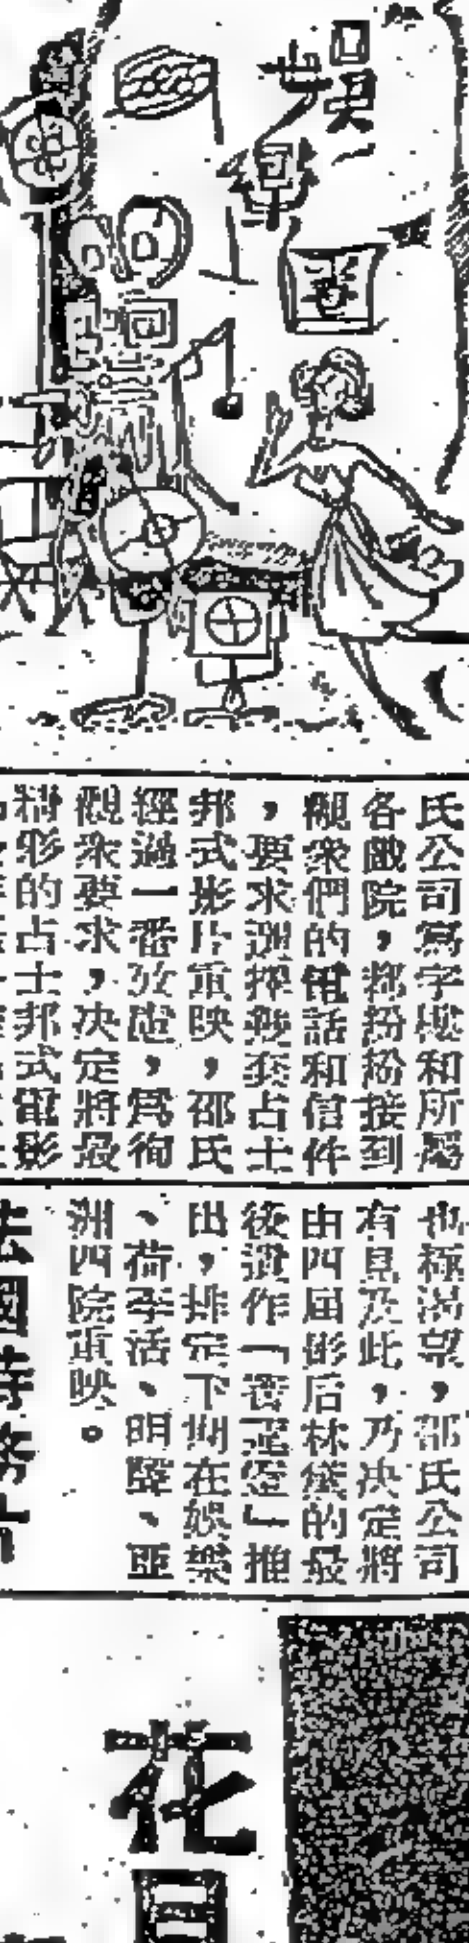 娛樂
氏公司寫字樓和所屬
各戲院，都紛紛接到
觀衆們的電話和信件
，要求選擇幾套占士
邦式影片重映，邵氏
經過一番攷慮，爲徇
觀衆要求，决定將最
精彩的占士邦式電影
也極渴望，邵氏公司
有見及此，乃决定將
由四屆影后林黛的最
後遺作「寶蓮燈」推
出，排定下期在娛樂
、荷李活、明聲、亜
洲四院重映。
花